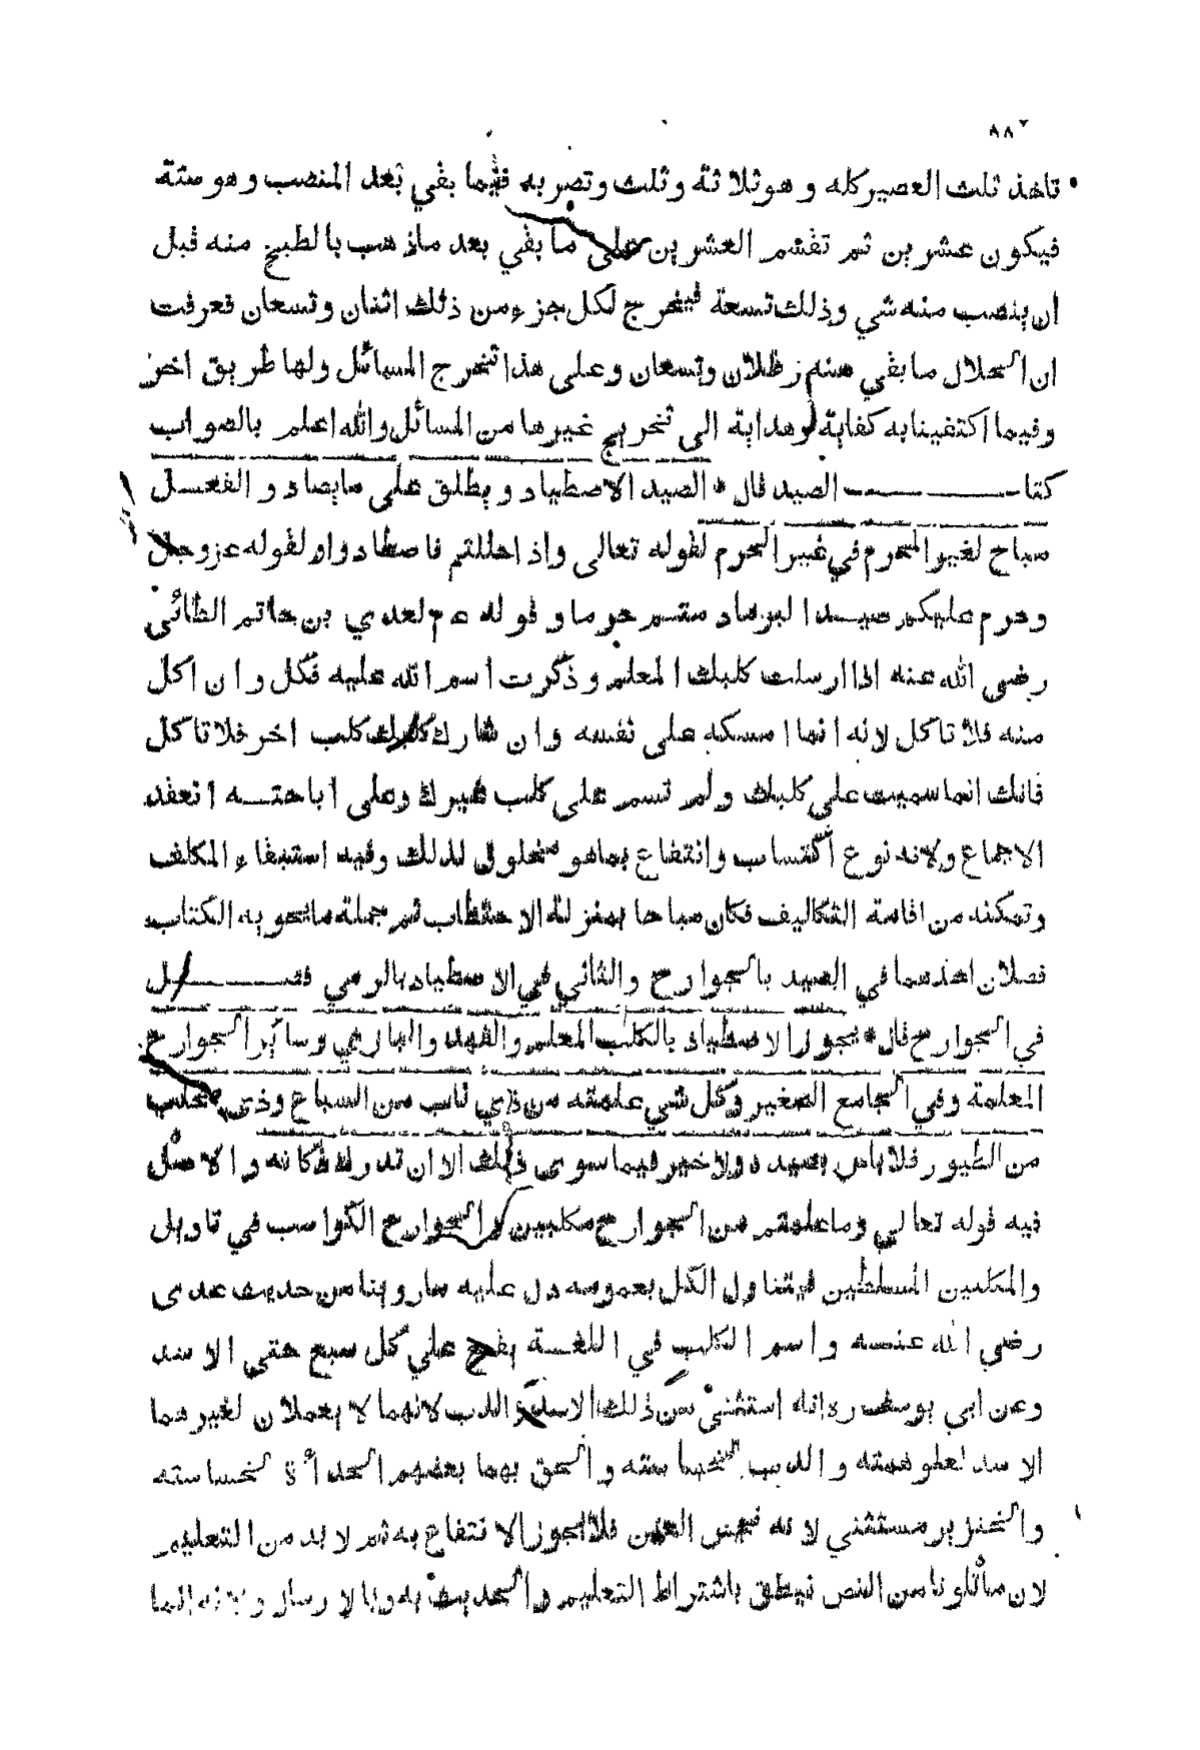 ٨٨٢
تاخذ ثلث العصير كله وهو ثلاثة وثلث وتضربه فيما بقي بعد المنصب وهو ستة
فيكون عشرين ثم تقسم العشرين على ما بقي بعد ما ذهب بالطبخ منه قبل
ان ينصب منه شي وذلك تسعة فيخرج لكل جزء من ذلك اثنان وتسعان فعرفت
ان الحلال ما بقي منه رطلان وتسعان وعلى هذا تخرج المسائل ولها طريق اخر
وفيما اكتفينا به كفاية وهداية الى تخريج غيرها من المسائل والله اعلم بالصواب
كتاب الصيد قال * الصيد الاصطياد ويطلق على ما يصاد والفعل
مباح لغير المحرم في غير الحرم لقوله تعالى واذا حللتم فاصطادوا ولقوله عز وجل
وحرم عليكم صيد البر ما دمتم حرما وقوله عم لعدي بن حاتم الطائي
رضى الله عنه اذا ارسلت كلبك المعلم وذكرت اسم الله عليه فكل وان اكل
منه فلا تاكل لانه انما امسكه على نفسه وان شارك كلبك كلب اخر فلا تاكل
فانك انما سميت على كلبك ولم تسم على كلب غيرك وعلى اباحته انعقد
الاجماع ولانه نوع اكتساب وانتفاع بما هو مخلوق لذلك وفيه استبقاء المكلف
وتمكنه من اقامة التكاليف فكان مباحا بمنزلة الاحتطاب ثم جملة ما يحويه الكتاب
فصلان احدهما في الصيد بالجوارح والثاني في الاصطياد بالرمي فصل
في الجوارح قال * يجوز الاصطياد بالكلب المعلم والفهد والبازي وسائر الجوارح
المعلمة وفي الجامع الصغير وكل شي علمته من ذي ناب من السباع وذى مخلب
من الطيور فلا باس بصيده ولا خير فيما سوى ذلك الا ان تدرك ذكاته والاصل
فيه قوله تعالي وما علمتم من الجوارح مكلبين والجوارح الكواسب في تاويل
والمكلبين المسلطين فيتناول الكل بعمومه دل عليه ما روينا من حديث عدى
رضي الله عنه واسم الكلب في اللغة يقع علي كل سبع حتى الاسد
وعن ابي يوسف ره انه استثنى من ذلك الاسد والدب لانهما لا يعملان لغيرهما
الاسد لعلو همته والدب لخساسته والحق بهما بعضهم الحدأة لخساسته
والخنزير مستثنى لانه نجس العين فلا يجوز الانتفاع به ثم لا بد من التعليم
لان ما تلونا من النص نيطق باشتراط التعليم والحديث به وبالارسال ولانه انما